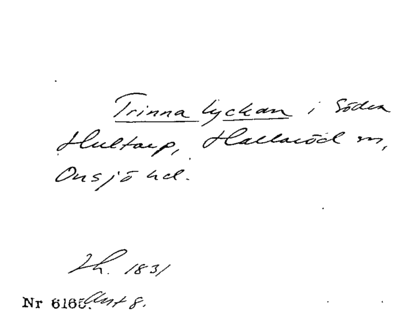 Trinna lyckan i Södra
Hultarp, Hallaröd sn,
Onsjö hd.
Lh. 1831
Nr 6165. Akt 8.